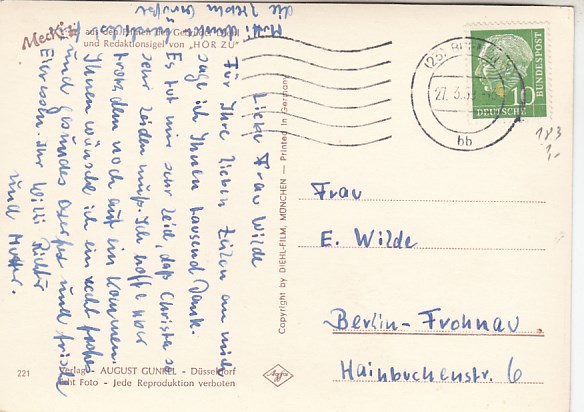 Mecki
aus den Filmen der Gebrüder Diehl
und Redaktionsigel von „HÖR ZU“
Liebe Frau Wilde
Für Ihre lieben Zeilen an mich
sage ich Ihnen tausend Dank.
Es tut mir sehr Leid, daß Christa so
sehr leiden muß. Ich hoffe nur
trotzdem noch auf ein Kommen.
Ihnen wünsche ich ein recht frohes
und gesundes Osterfest und frische
Eier essen. Ihr Willi Richter
und Mutter.
die lieben Grüße
221
Verlag - AUGUST GUNKEL - Düsseldorf
Echt Foto - Jede Reproduktion verboten
Agfa
Copyright by DIEHL-FILM, MÜNCHEN — Printed in Germany
27. 3. 59
bb
10
DEUTSCHE
BUNDESPOST
183
1,-
Frau
E. Wilde
Berlin-Frohnau
Hainbuchenstr. 6